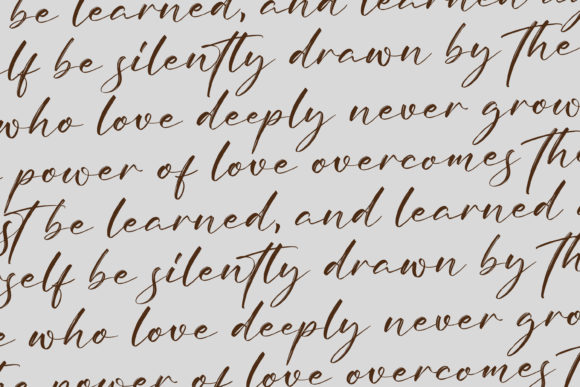 be learned, and learned
self be silently drawn by the
who love deeply never grow
power of love overcomes the
st be learned, and learned
rself be silently drawn by the
e who love deeply never gro
power of love overcomes the